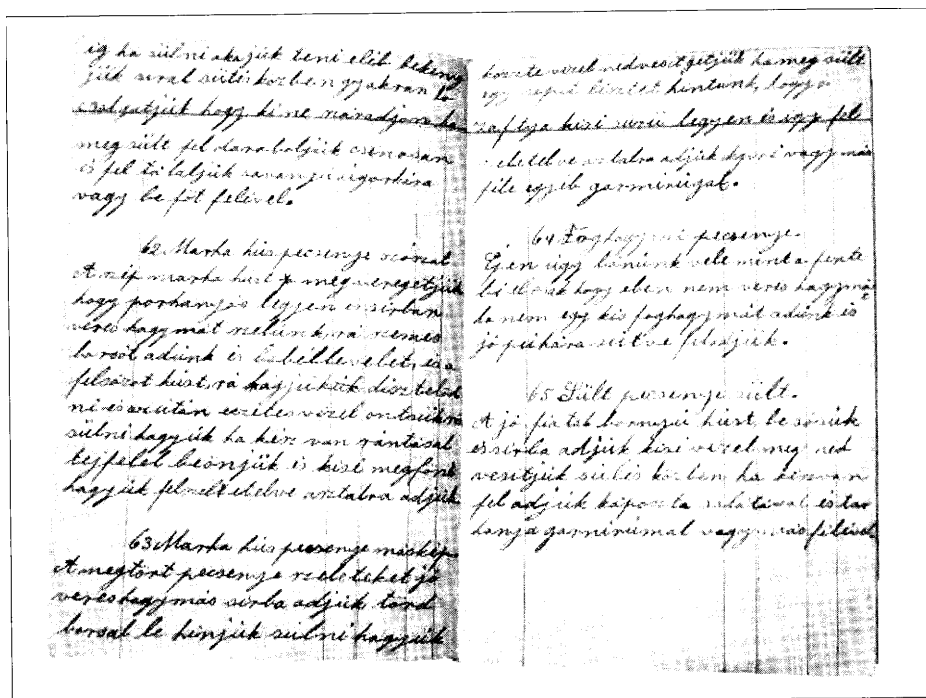 ig ha sülni akajuk teni elöb bekeny
jük siral sütes közben gyakran lo
csolgatjuk hogy ki ne száradjon ha
meg sült fel daraboljuk csinosan
és fel tálaljuk savanyú ugorkára
vagy be föt felével.
62 Marha hús pecsenye
A szép marha hust megveregetjük
hogy porhanyós legyen és sirban
veres hagymát szelünk rá szemes
borsot adunk és levelet és a
felsózot hust rá hagjuk
ni és azután eczetes vizel öntsük rá
sülni hagyjuk ha kész van rántásal
tejfelel beönjük is kisé megföni
hagyjuk felszeletelve asztalra adjuk
63 Marha hús pecsenye máskép
A megtört pecsenye szeleteket jó
vereshagymás sirba adjuk törd
borsal le hinjük sülni hagyjuk
közte vizel nedvesitgetjük ha meg sült
egy kisztet hintunk, hogy a
zaftja kisé sürü legyen és igy fel
szeletelve asztalra adjuk vagy más
féle egyéb garnirúngal.
64 Foghagymás pecsenye.
Ejen úgy bánunk vele mint a fente
bi hogy eben nem veres hagymát
ha nem egy kis foghagymát adunk és
jó púhára sütve feladjuk.
65 Sült pecsenye sült.
A jó fiatal bornyú húst be sózuk
és sirba adjuk kisé vizel meg ned
vesitjük sülés közben ha készvan
fel adjuk káposzta salátával és tar
hanya garnirúmal vagy más félével